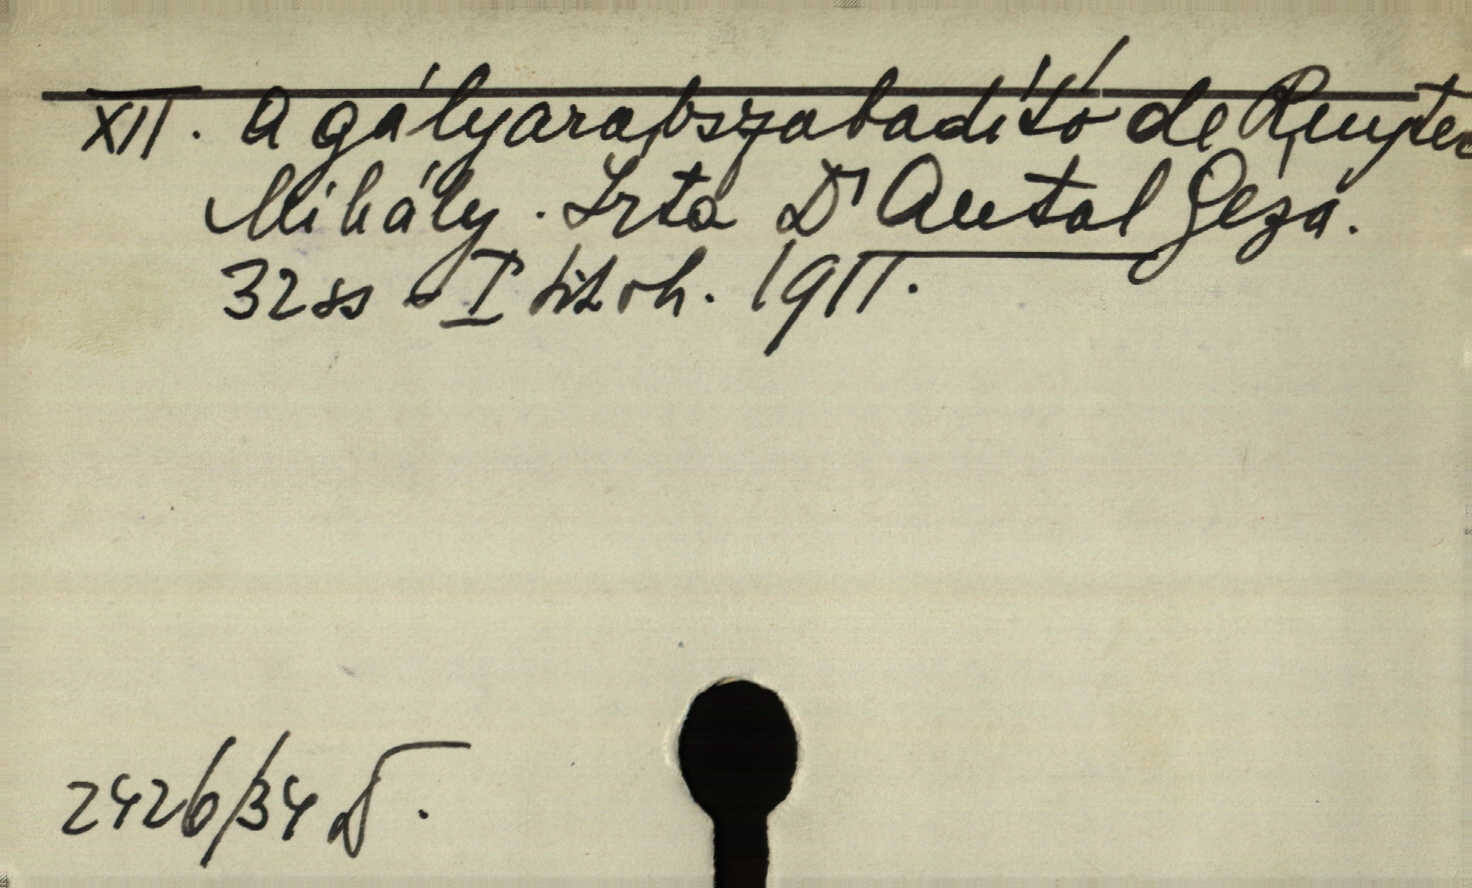 XII. A gályarabszabadító de Ruyter
Mihály. Irta Dr Antal Géza.
32 ss - I tit. rh. 1911.
2426/34